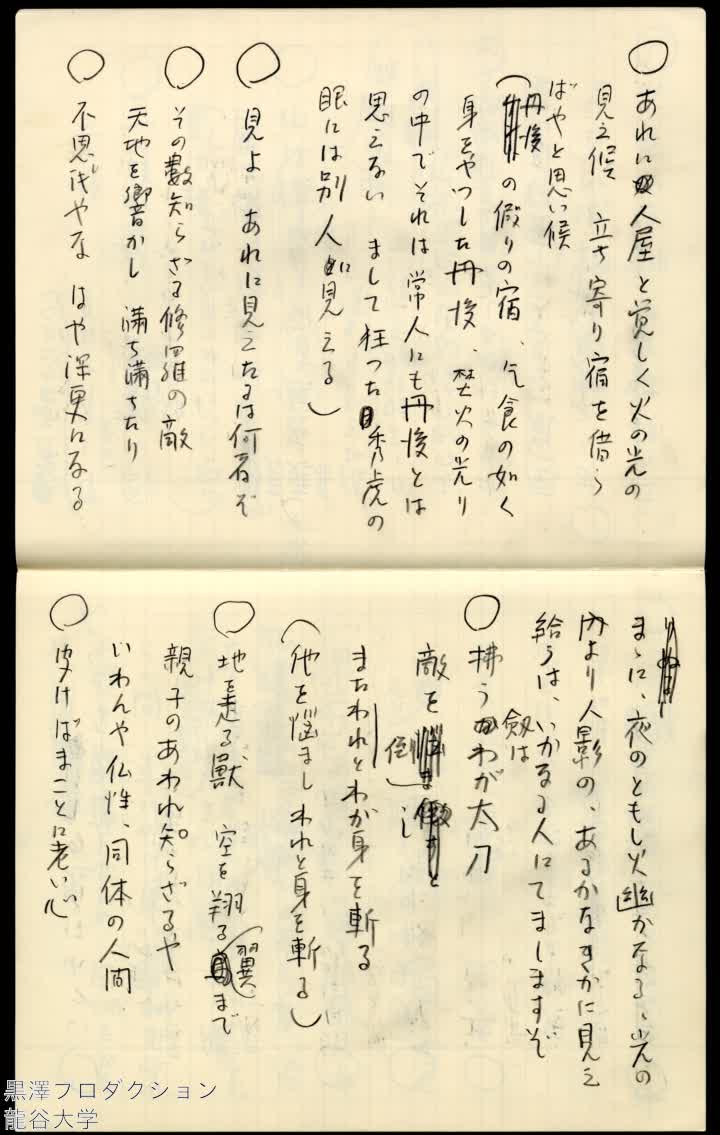 ○ あれに人屋と覚しく火の光の
見え候 立ち寄り宿を借ら
ばやと思い候
(丹後の假りの宿、乞食の如く
身をやつした丹後、焚火の光り
の中でそれは常人にも丹後とは
思えない まして狂った秀虎の
眼には別人に見える)
○ 見よ あれに見えたるは何者ぞ
○ その数知らざる修羅の敵
天地を響かし 満ち満ちたり
○ 不思儀やな はや深更になる
まゝに、夜のともし火幽かなる、光の
内より人影の、あるかなきかに見え
給うは、いかなる人にてましますぞ
○ 拂う剱はわが太刀
敵を倒し
またわれとわが身を斬る
(他を悩ましわれと身を斬る)
○ 地を走る獣 空を翔る翼まで
親子のあわれ知らざるや
いわんや仏性、同体の人間
○ 受けばまことに老い心
黒澤プロダクション
龍谷大学